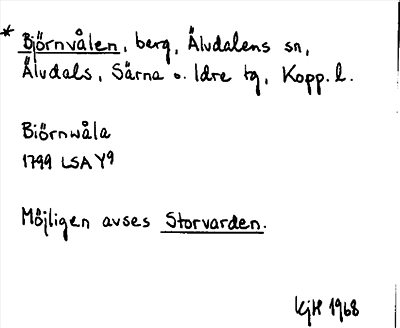 * Björnvålen, berg, Älvdalens sn,
Älvdals, Särna o. Idre tg, Kopp. l.
Biörnwåla
1799 LSA Y9
Möjligen avses Storvarden.
KjH 1968